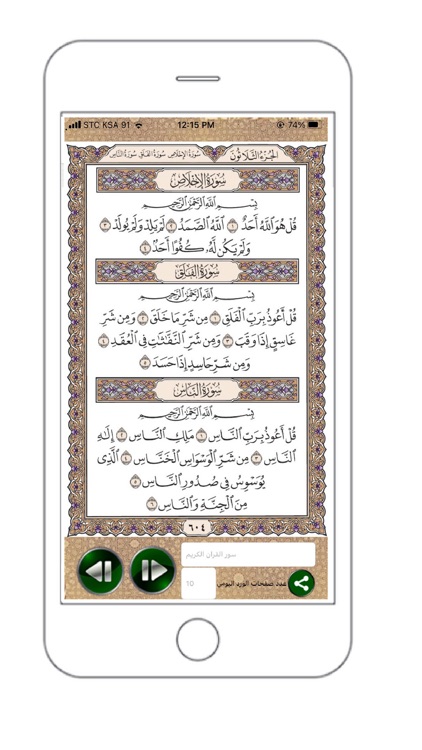 STC KSA 91 12:15 PM 74%
الجزء الثلاثون سورة الإخلاص سورة الفلق سورة الناس
سُورَةُ الإِخْلَاصِ
بِسْمِ ٱللَّهِ ٱلرَّحْمَٰنِ ٱلرَّحِيمِ
قُلْ هُوَ ٱللَّهُ أَحَدٌ ١ ٱللَّهُ ٱلصَّمَدُ ٢ لَمْ يَلِدْ وَلَمْ يُولَدْ ٣
وَلَمْ يَكُن لَّهُۥ كُفُوًا أَحَدٌۢ ٤
سُورَةُ الفَلَقِ
بِسْمِ ٱللَّهِ ٱلرَّحْمَٰنِ ٱلرَّحِيمِ
قُلْ أَعُوذُ بِرَبِّ ٱلْفَلَقِ ١ مِن شَرِّ مَا خَلَقَ ٢ وَمِن شَرِّ
غَاسِقٍ إِذَا وَقَبَ ٣ وَمِن شَرِّ ٱلنَّفَّٰثَٰتِ فِى ٱلْعُقَدِ ٤
وَمِن شَرِّ حَاسِدٍ إِذَا حَسَدَ ٥
سُورَةُ النَّاسِ
بِسْمِ ٱللَّهِ ٱلرَّحْمَٰنِ ٱلرَّحِيمِ
قُلْ أَعُوذُ بِرَبِّ ٱلنَّاسِ ١ مَلِكِ ٱلنَّاسِ ٢ إِلَٰهِ
ٱلنَّاسِ ٣ مِن شَرِّ ٱلْوَسْوَاسِ ٱلْخَنَّاسِ ٤ ٱلَّذِى
يُوَسْوِسُ فِى صُدُورِ ٱلنَّاسِ ٥
مِنَ ٱلْجِنَّةِ وَٱلنَّاسِ ٦
٦٠٤
سور القران الكريم
عدد صفحات الورد اليومي 10